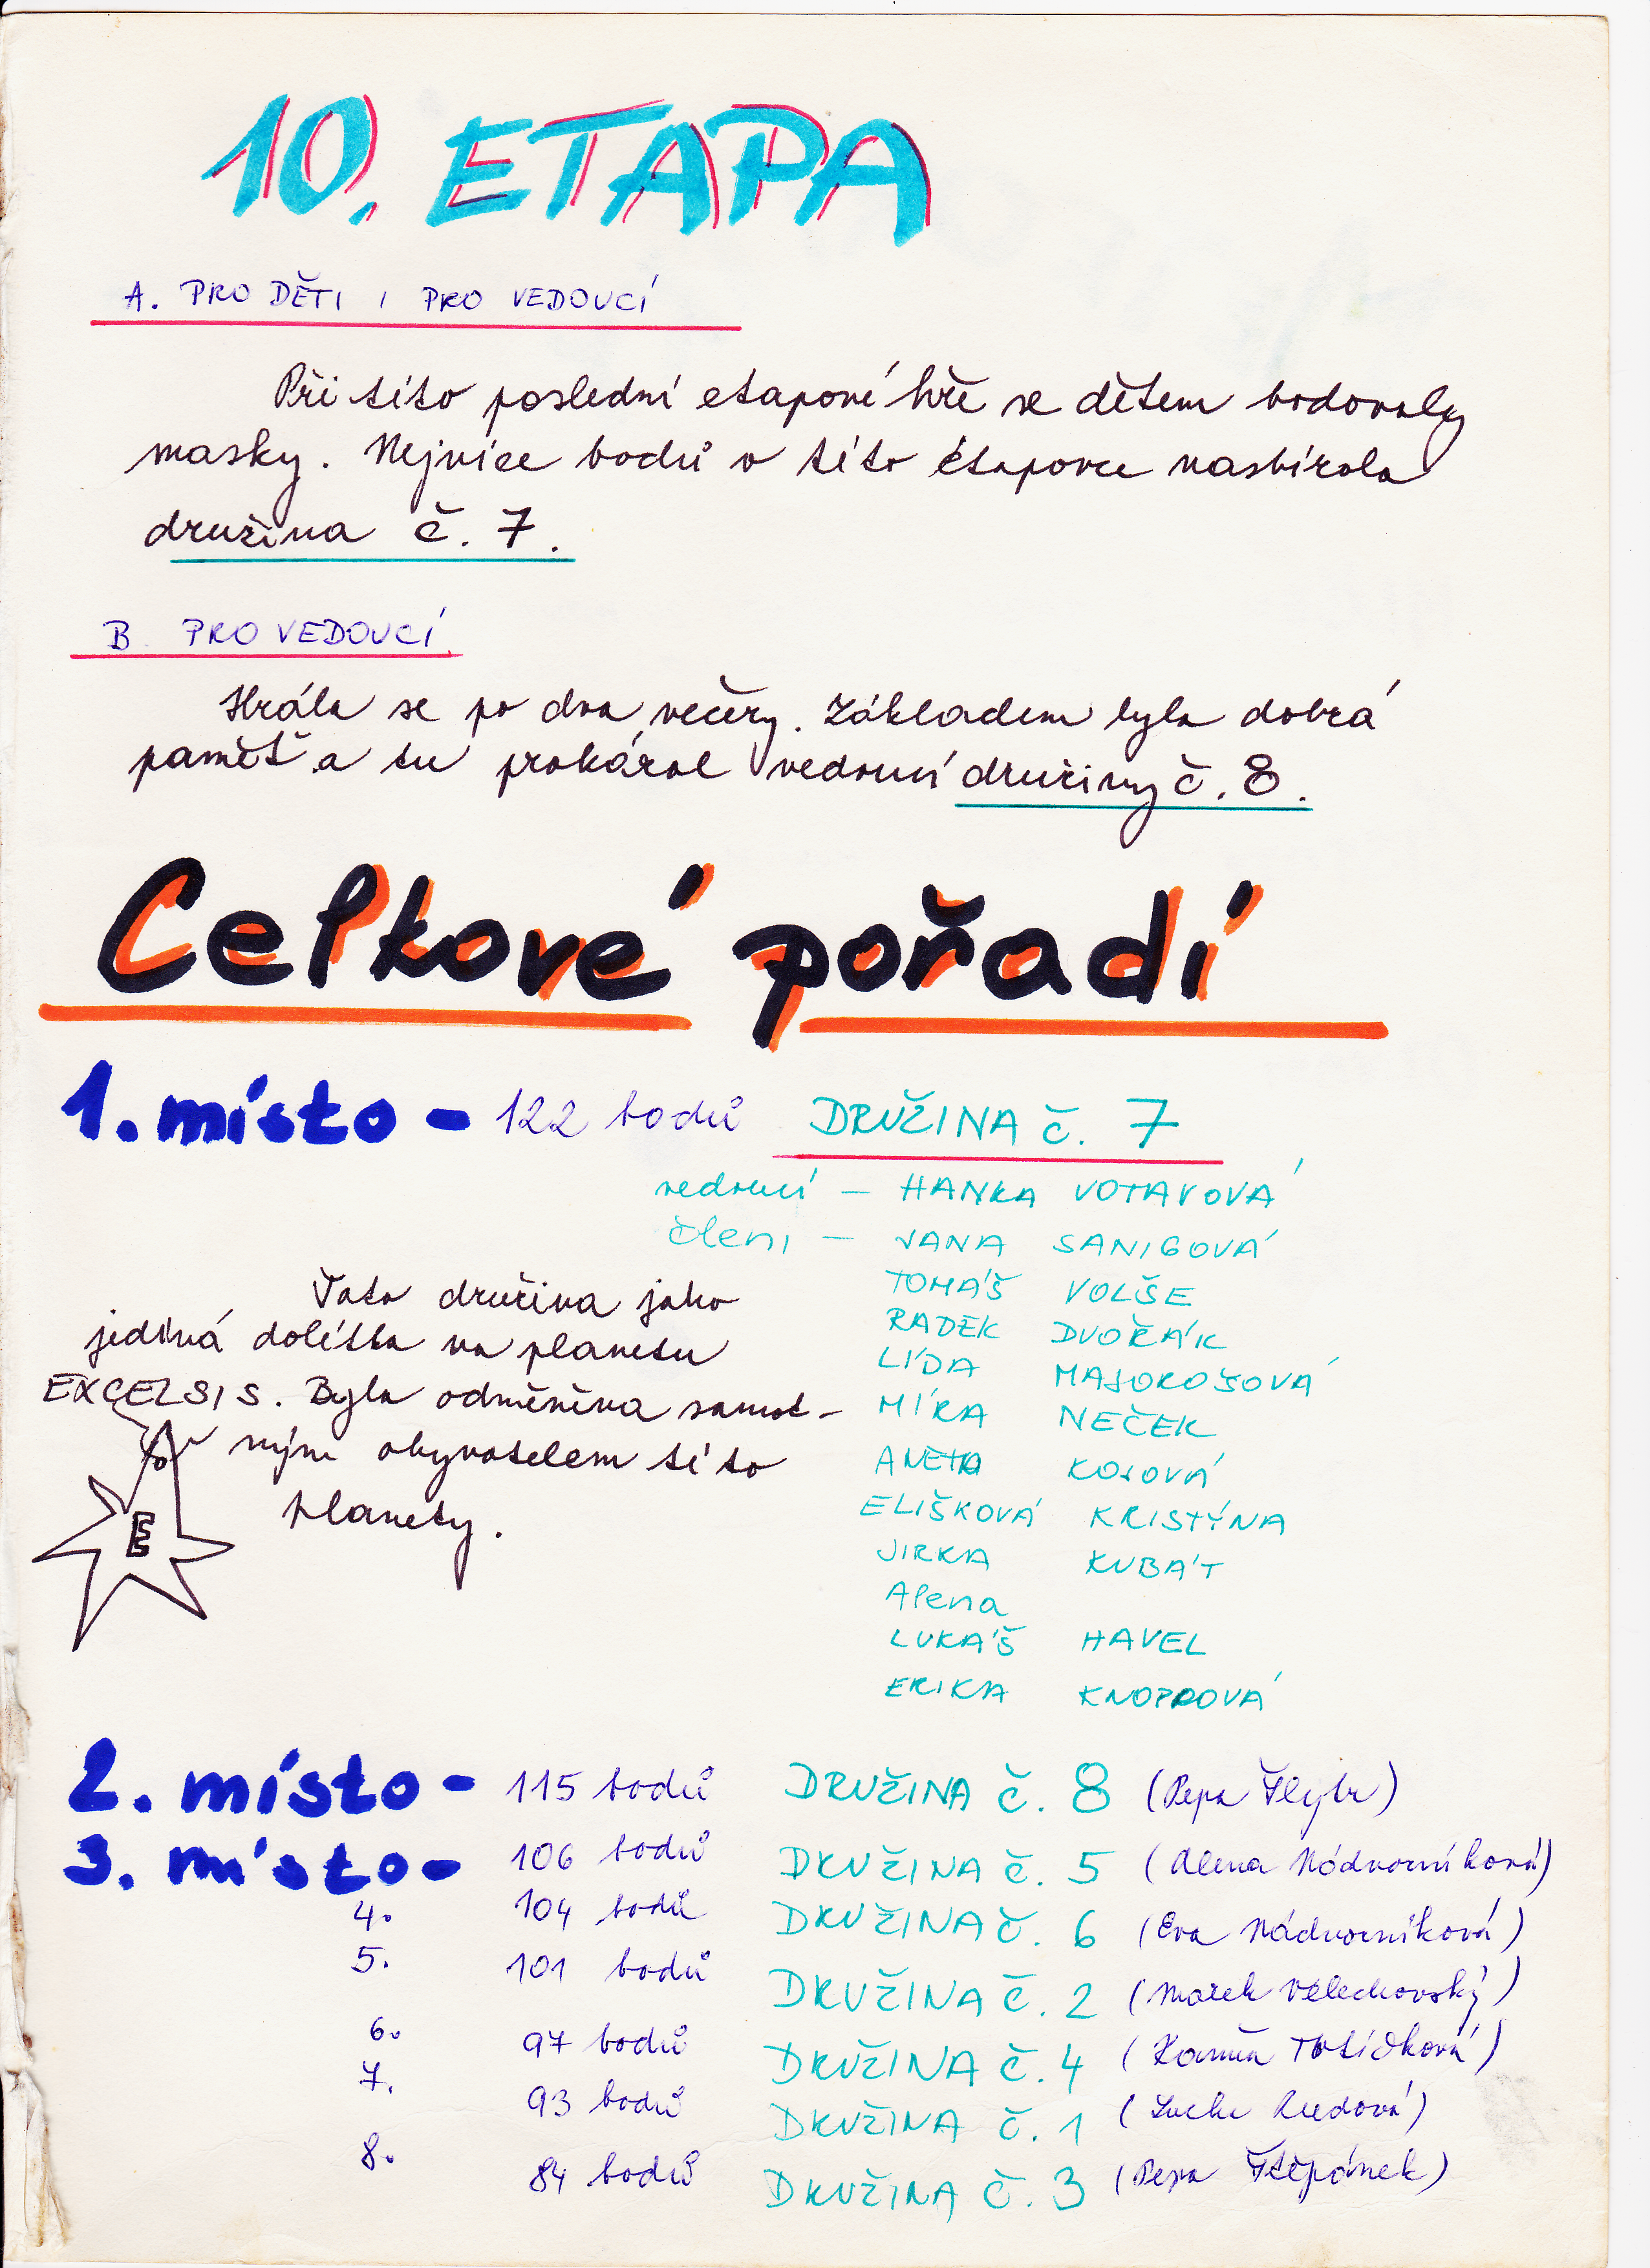 10. ETAPA
A. PRO DĚTI I PRO VEDOUCÍ
Při této poslední etapové hře se dětem bodovaly
masky. Nejvíce bodů v této etapovce nasbírala
družina č. 7.
B PRO VEDOUCÍ
Hrála se po dva večery. Základem byla dobrá
paměť a tu prokázal vedoucí družiny č. 8.
Celkové pořadí
1. místo - 122 bodů DRUŽINA č. 7
vedoucí - HANKA VOTAVOVÁ
členi - JANA SANIGOVÁ
TOMÁŠ VOLŠE
RADEK DVOŘÁK
LÍDA MAJOROŠOVÁ
MÍRA NEČEK
ANETA KOSOVÁ
ELIŠKOVÁ KRISTÝNA
JIRKA KUBÁT
Alena
LUKÁŠ HAVEL
ERIKA
Tato družina jako
jediná dolétla na planetu
EXCELSIS. Byla odměněna samot-
ným obyvatelem této
planety.
E
2. místo - 115 bodů DRUŽINA č. 8 (Pepa)
3. místo - 106 bodů DRUŽINA č. 5 (Alena Nádvorníková)
4. 104 bodů DRUŽINA č. 6 (Eva Nádvorníková)
5. 101 bodů DRUŽINA č. 2 (Marek Velechovský)
6. 97 bodů DRUŽINA č. 4
7. 93 bodů DRUŽINA č. 1
8. 84 bodů DRUŽINA č. 3 (Pepa Štěpánek)